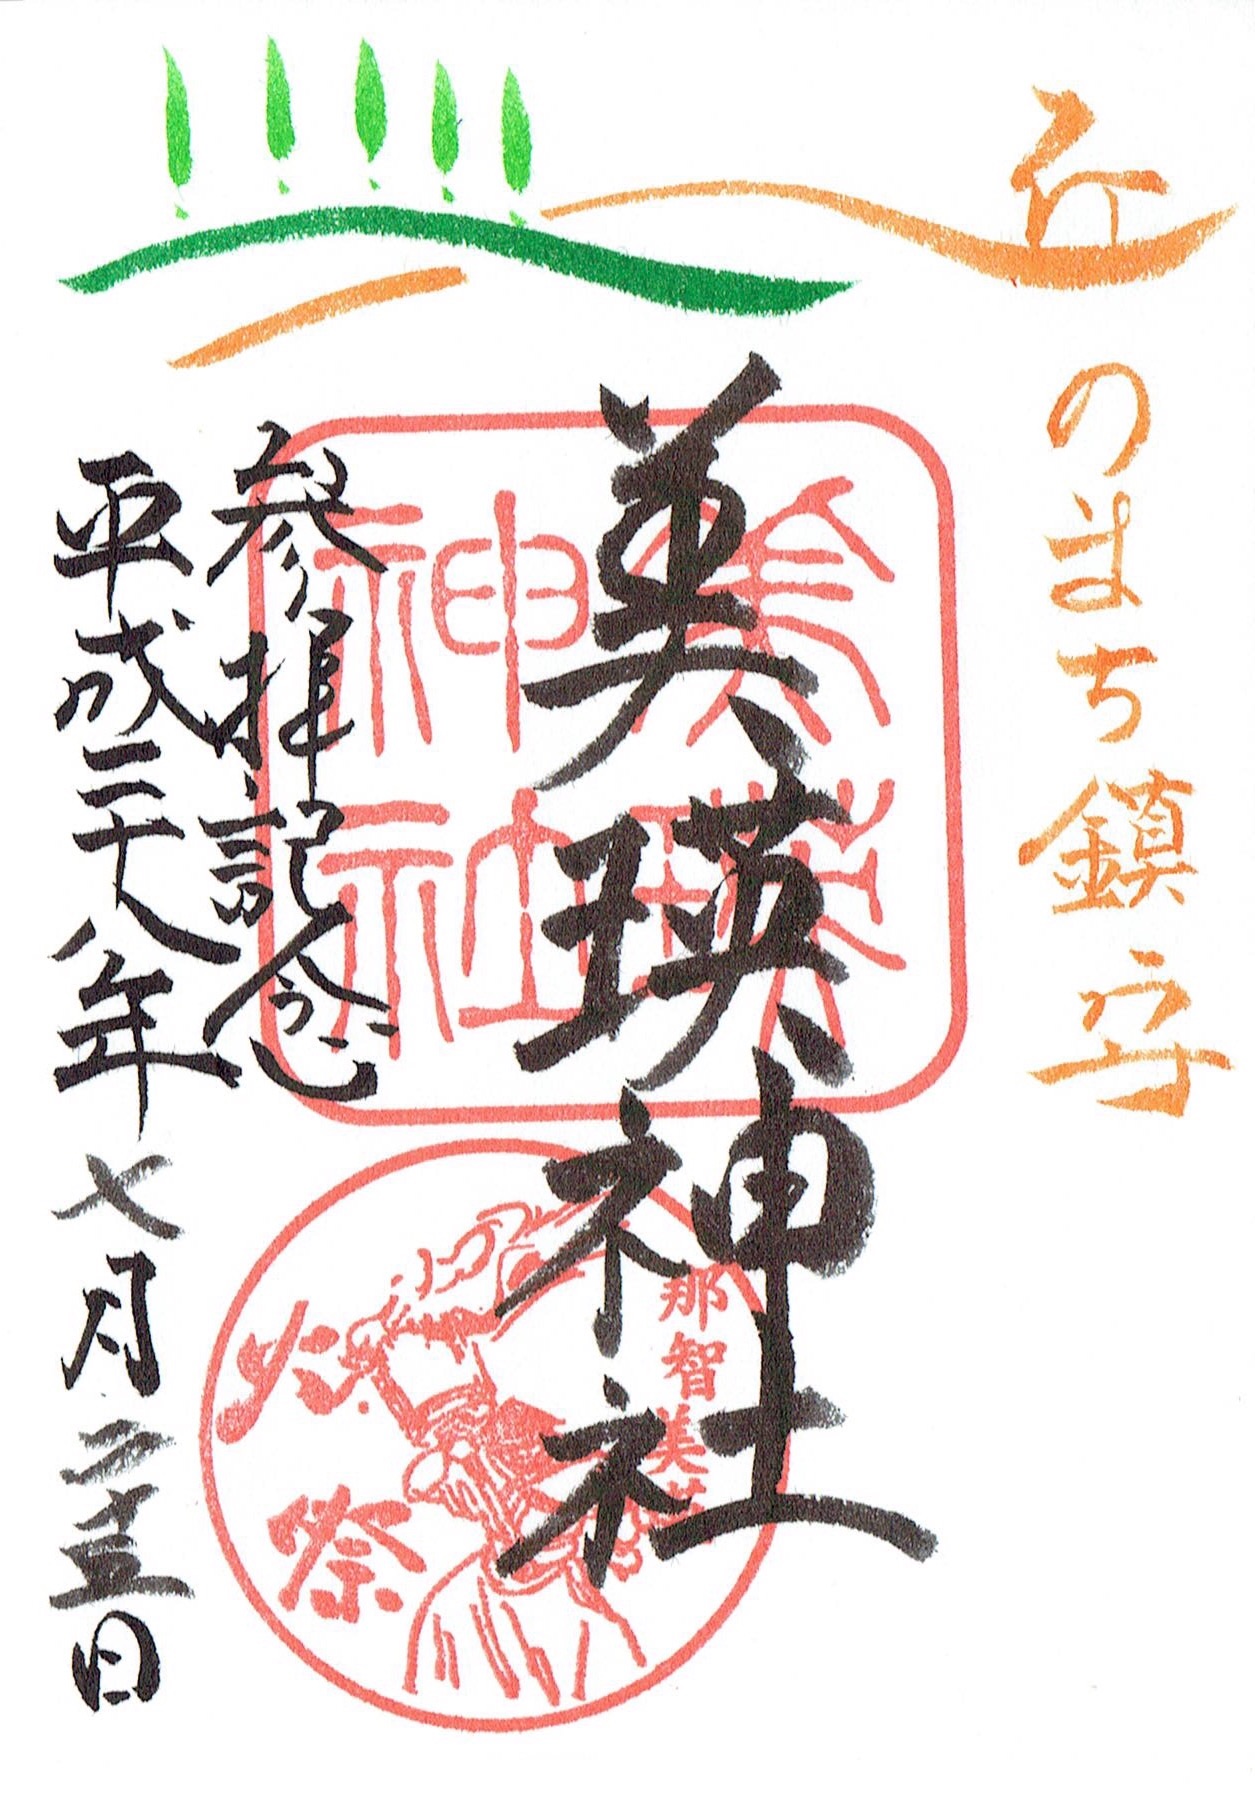 丘のまち鎮守
美瑛神社
参拝記念
平成二十八年七月二十五日
美瑛
神社
那智美瑛
火祭